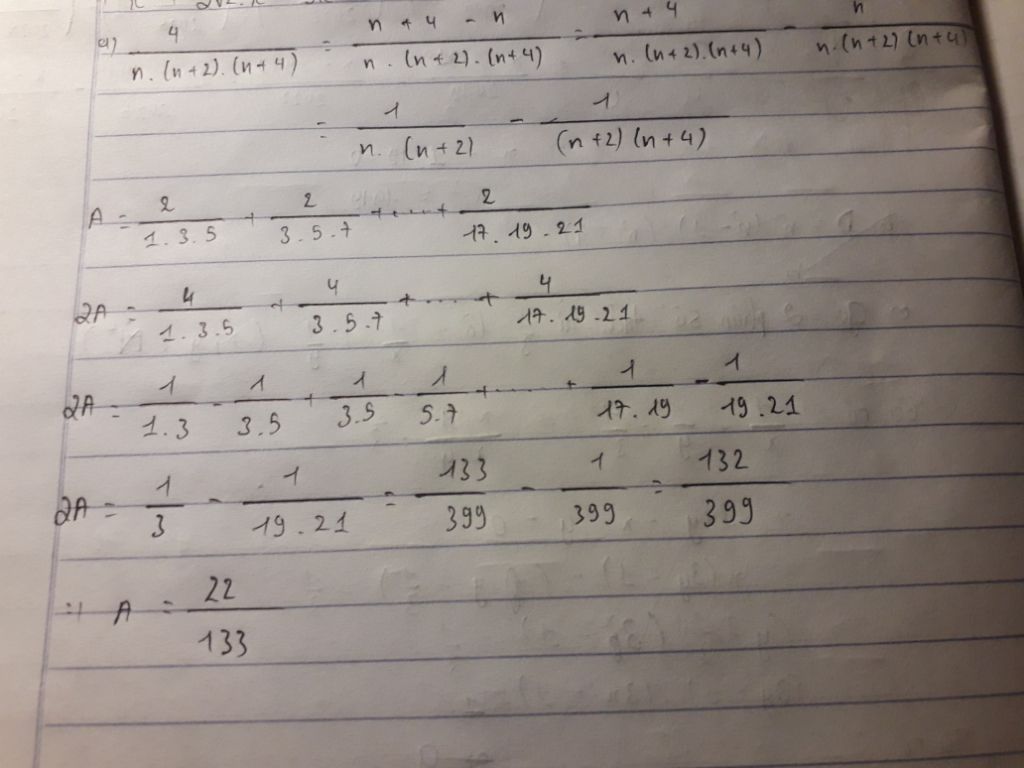 a) 4/(n.(n+2).(n+4)) = (n+4-n)/(n.(n+2).(n+4)) = (n+4)/(n.(n+2).(n+4)) - n/(n.(n+2)(n+4))
= 1/(n.(n+2)) - 1/((n+2)(n+4))
A = 2/(1.3.5) + 2/(3.5.7) + .... + 2/(17.19.21)
2A = 4/(1.3.5) + 4/(3.5.7) + ..... + 4/(17.19.21)
2A = 1/(1.3) - 1/(3.5) + 1/(3.5) - 1/(5.7) + ...... + 1/(17.19) - 1/(19.21)
2A = 1/3 - 1/(19.21) = 133/399 - 1/399 = 132/399
=) A = 22/133